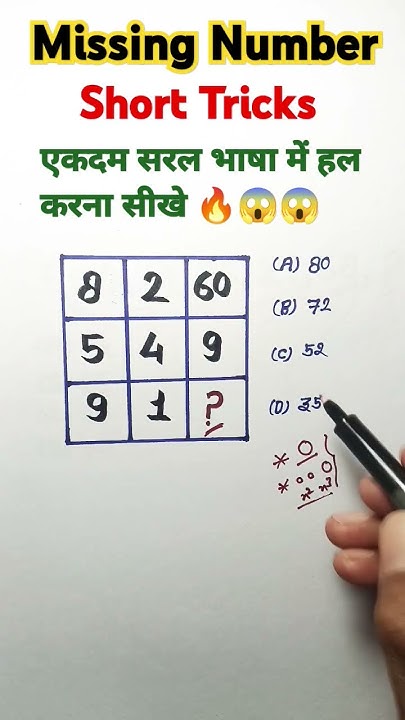 Missing Number
Short Tricks
एकदम सरल भाषा में हल
करना सीखे 🔥😱😱
8 2 60
5 4 9
9 1 ?
(A) 80
(B) 72
(C) 52
(D) 35
* O
* o o O
x² x³